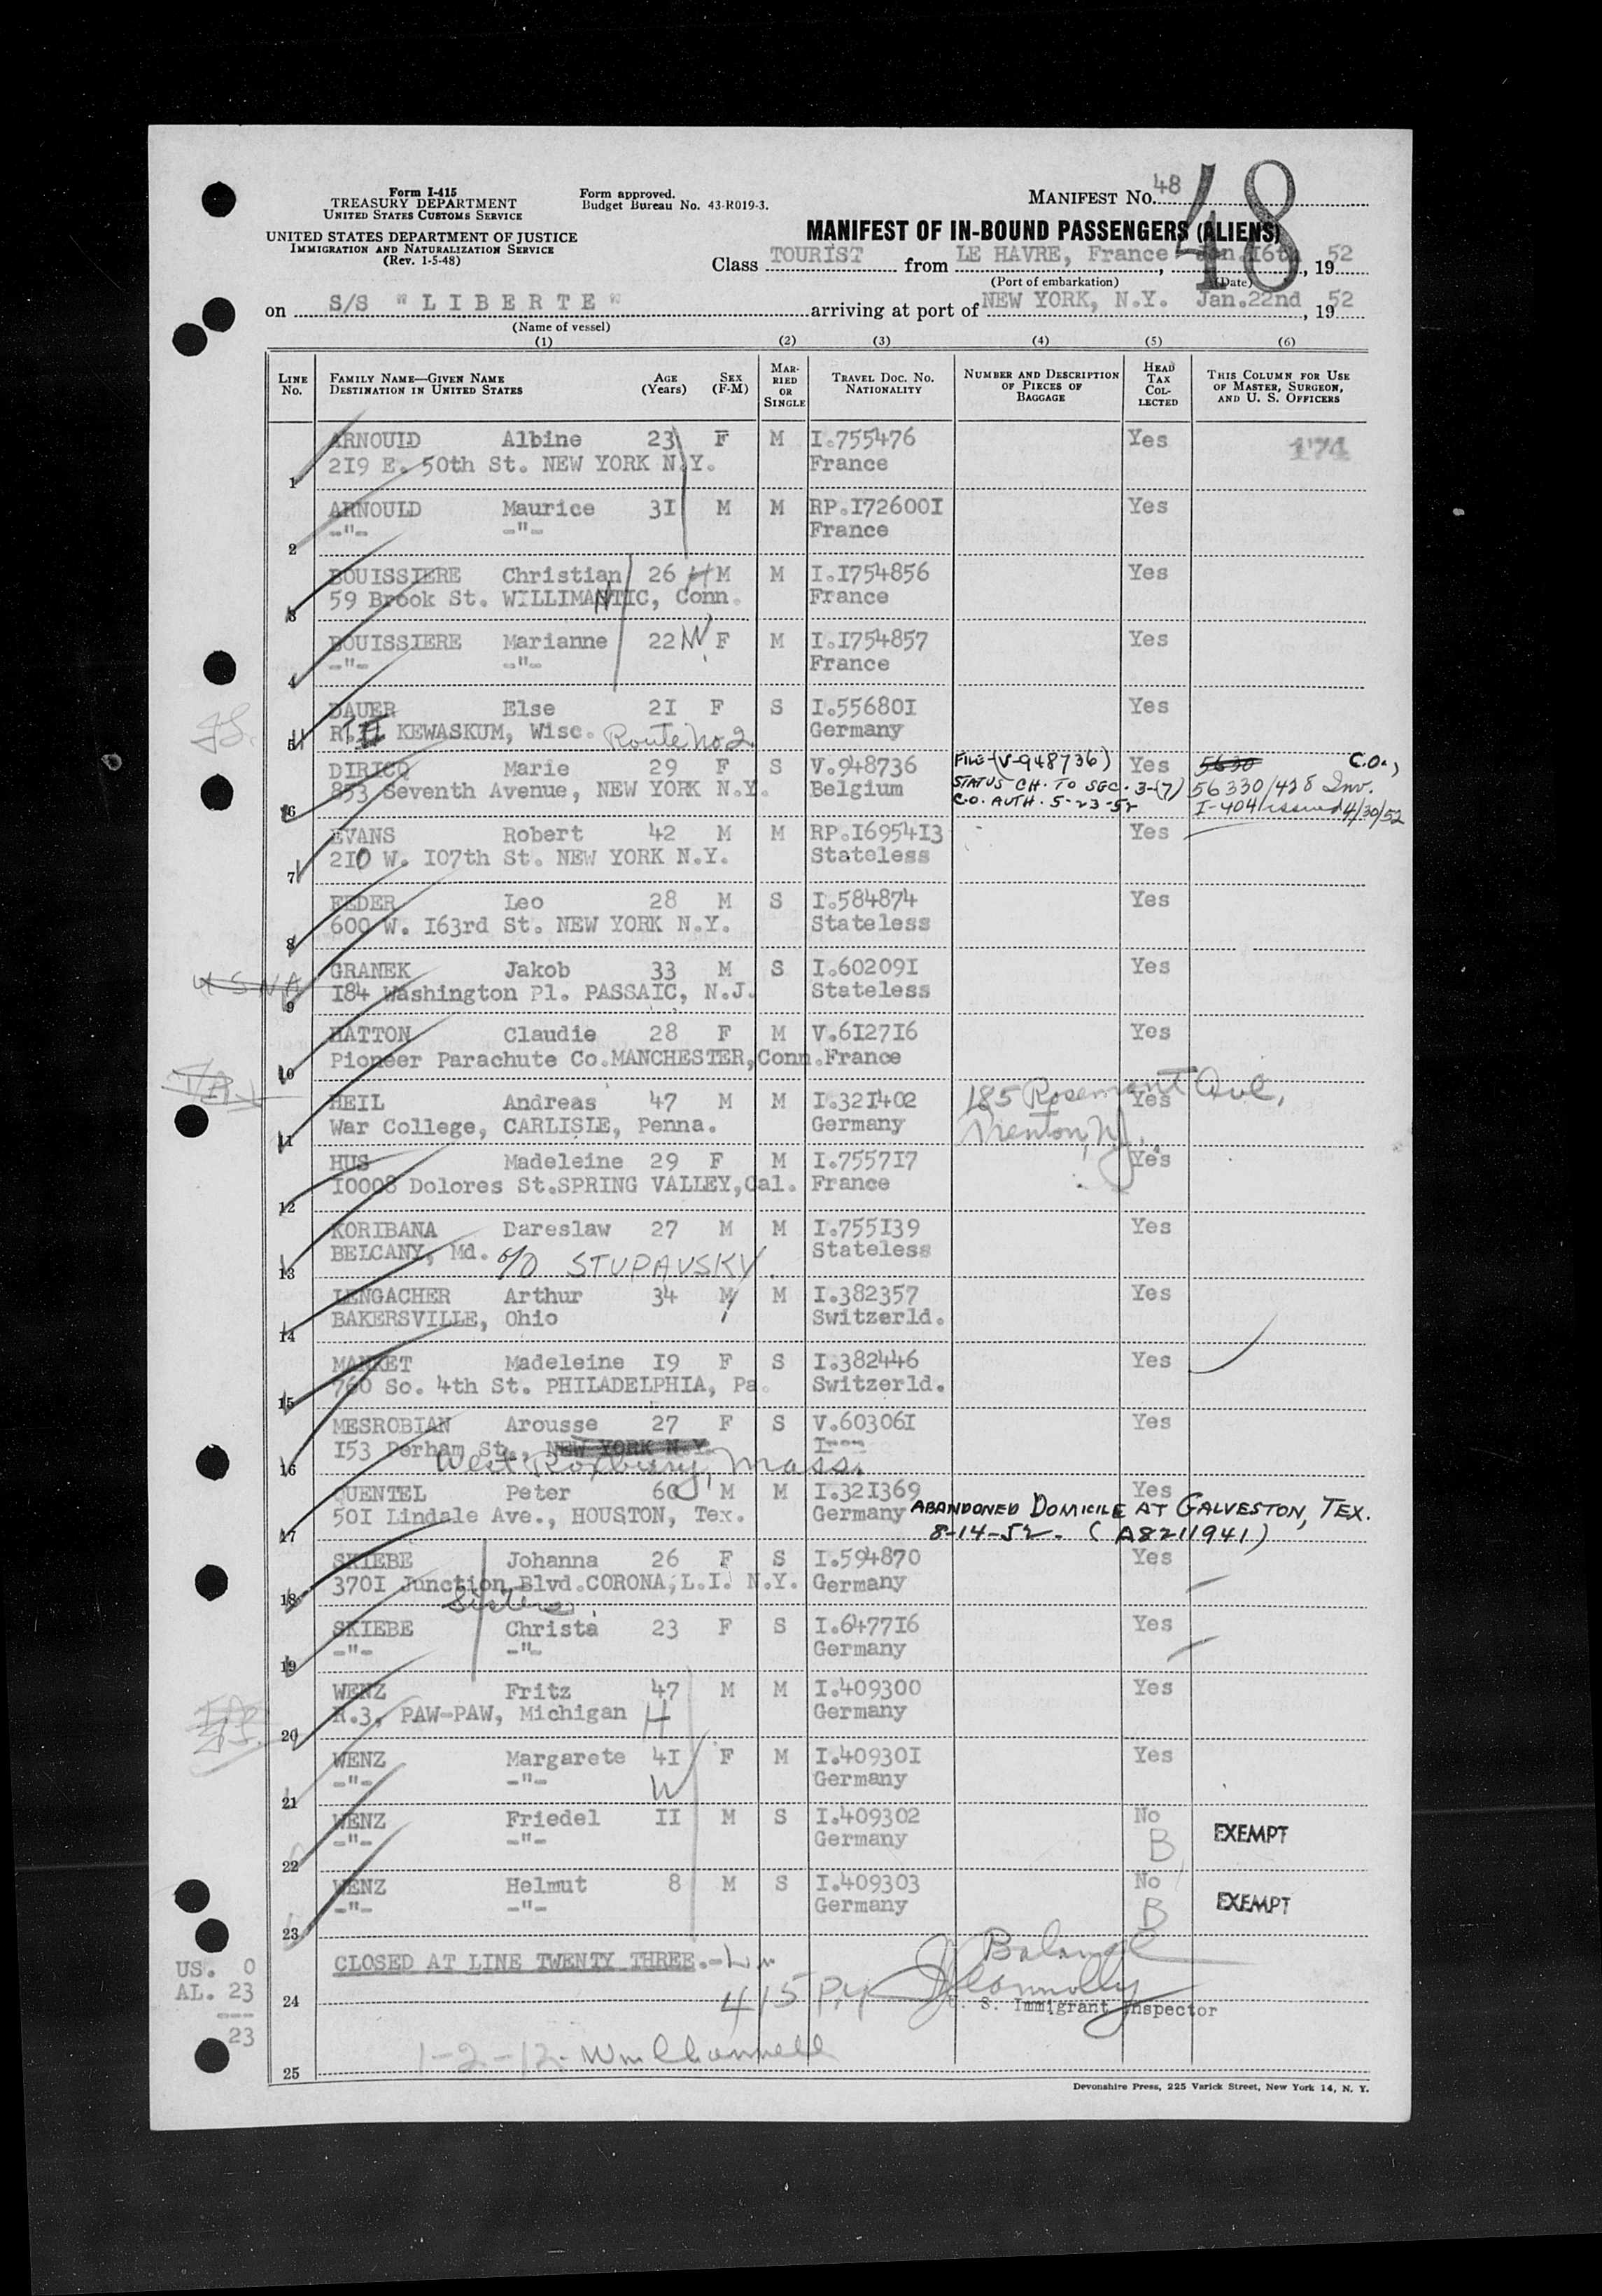 Form I-415
TREASURY DEPARTMENT
UNITED STATES CUSTOMS SERVICE
UNITED STATES DEPARTMENT OF JUSTICE
IMMIGRATION AND NATURALIZATION SERVICE
(Rev. 1-5-48)
Form approved.
Budget Bureau No. 43-R019-3.
MANIFEST No. 48
48
MANIFEST OF IN-BOUND PASSENGERS (ALIENS)
Class TOURIST from LE HAVRE, France, Jan. 16th, 1952
(Port of embarkation) (Date)
on S/S "LIBERTE" arriving at port of NEW YORK, N.Y. Jan.22nd, 1952
(Name of vessel)
(1) (2) (3) (4) (5) (6)
LINE No. FAMILY NAME—GIVEN NAME DESTINATION IN UNITED STATES AGE (Years) SEX (F-M) MARRIED OR SINGLE TRAVEL DOC. No. NATIONALITY NUMBER AND DESCRIPTION OF PIECES OF BAGGAGE HEAD TAX COLLECTED THIS COLUMN FOR USE OF MASTER, SURGEON, AND U. S. OFFICERS
ARNOUID Albine 23 F M I.755476 Yes 174
1 219 E. 50th St. NEW YORK N.Y. France
ARNOULD Maurice 3I M M RP.I72600I Yes
2 -"- -"- France
BOUISSIERE Christian 26 H M M I.I754856 Yes
3 59 Brook St. WILLIMANTIC, Conn. France
BOUISSIERE Marianne 22 W F M I.I754857 Yes
4 -"- -"- France
DAUER Else 2I F S I.55680I Yes
5 RT.II KEWASKUM, Wisc. Route No 2. Germany
DIRICQ Marie 29 F S V.948736 FILE-(V-948736) Yes 5630 C.O.,
6 853 Seventh Avenue, NEW YORK N.Y. Belgium STATUS CH. TO SEC. 3-(7) 56330/428 Inv.
C.O. AUTH. 5-23-52 I-404 issued 4/30/52
EVANS Robert 42 M M RP.I6954I3 Yes
7 210 W. I07th St. NEW YORK N.Y. Stateless
FEDER Leo 28 M S I.584874 Yes
8 600 W. I63rd St. NEW YORK N.Y. Stateless
USNA
GRANEK Jakob 33 M S I.60209I Yes
9 I84 Washington Pl. PASSAIC, N.J. Stateless
HATTON Claudie 28 F M V.6I27I6 Yes
10 Pioneer Parachute Co.MANCHESTER,Conn. France
HEIL Andreas 47 M M I.32I402 185 Rosemont Ave, Yes
11 War College, CARLISLE, Penna. Germany Trenton, NJ.
HUS Madeleine 29 F M I.7557I7 Yes
12 I0008 Dolores St.SPRING VALLEY,Cal. France
KORIBANA Dareslaw 27 M M I.755I39 Yes
13 BELCANY, Md. c/o STUPAVSKY. Stateless
LENGACHER Arthur 34 M M I.382357 Yes
14 BAKERSVILLE, Ohio Switzerld.
MANKET Madeleine I9 F S I.382446 Yes
15 760 So. 4th St. PHILADELPHIA, Pa. Switzerld.
MESROBIAN Arousse 27 F S V.60306I Yes
16 I53 Perham St., NEW YORK N.Y. Iran
West Roxbury, Mass.
QUENTEL Peter 60 M M I.32I369 Yes
17 50I Lindale Ave., HOUSTON, Tex. Germany ABANDONED DOMICILE AT GALVESTON, TEX.
8-14-52. (A8211941)
SKIEBE Johanna 26 F S I.594870 Yes
18 370I Junction Blvd.CORONA,L.I. N.Y. Germany
Sisters
SKIEBE Christa 23 F S I.6477I6 Yes
19 -"- -"- Germany
WENZ Fritz 47 M M I.409300 Yes
20 R.3, PAW-PAW, Michigan H Germany
WENZ Margarete 4I F M I.40930I Yes
21 -"- -"- W Germany
WENZ Friedel II M S I.409302 No
22 -"- -"- Germany B EXEMPT
WENZ Helmut 8 M S I.409303 No
23 -"- -"- Germany B EXEMPT
CLOSED AT LINE TWENTY THREE.-
US. 0
AL. 23
---
23
24 415 Connolly
U. S. Immigrant Inspector
1-2-12.
25
Devonshire Press, 225 Varick Street, New York 14, N. Y.